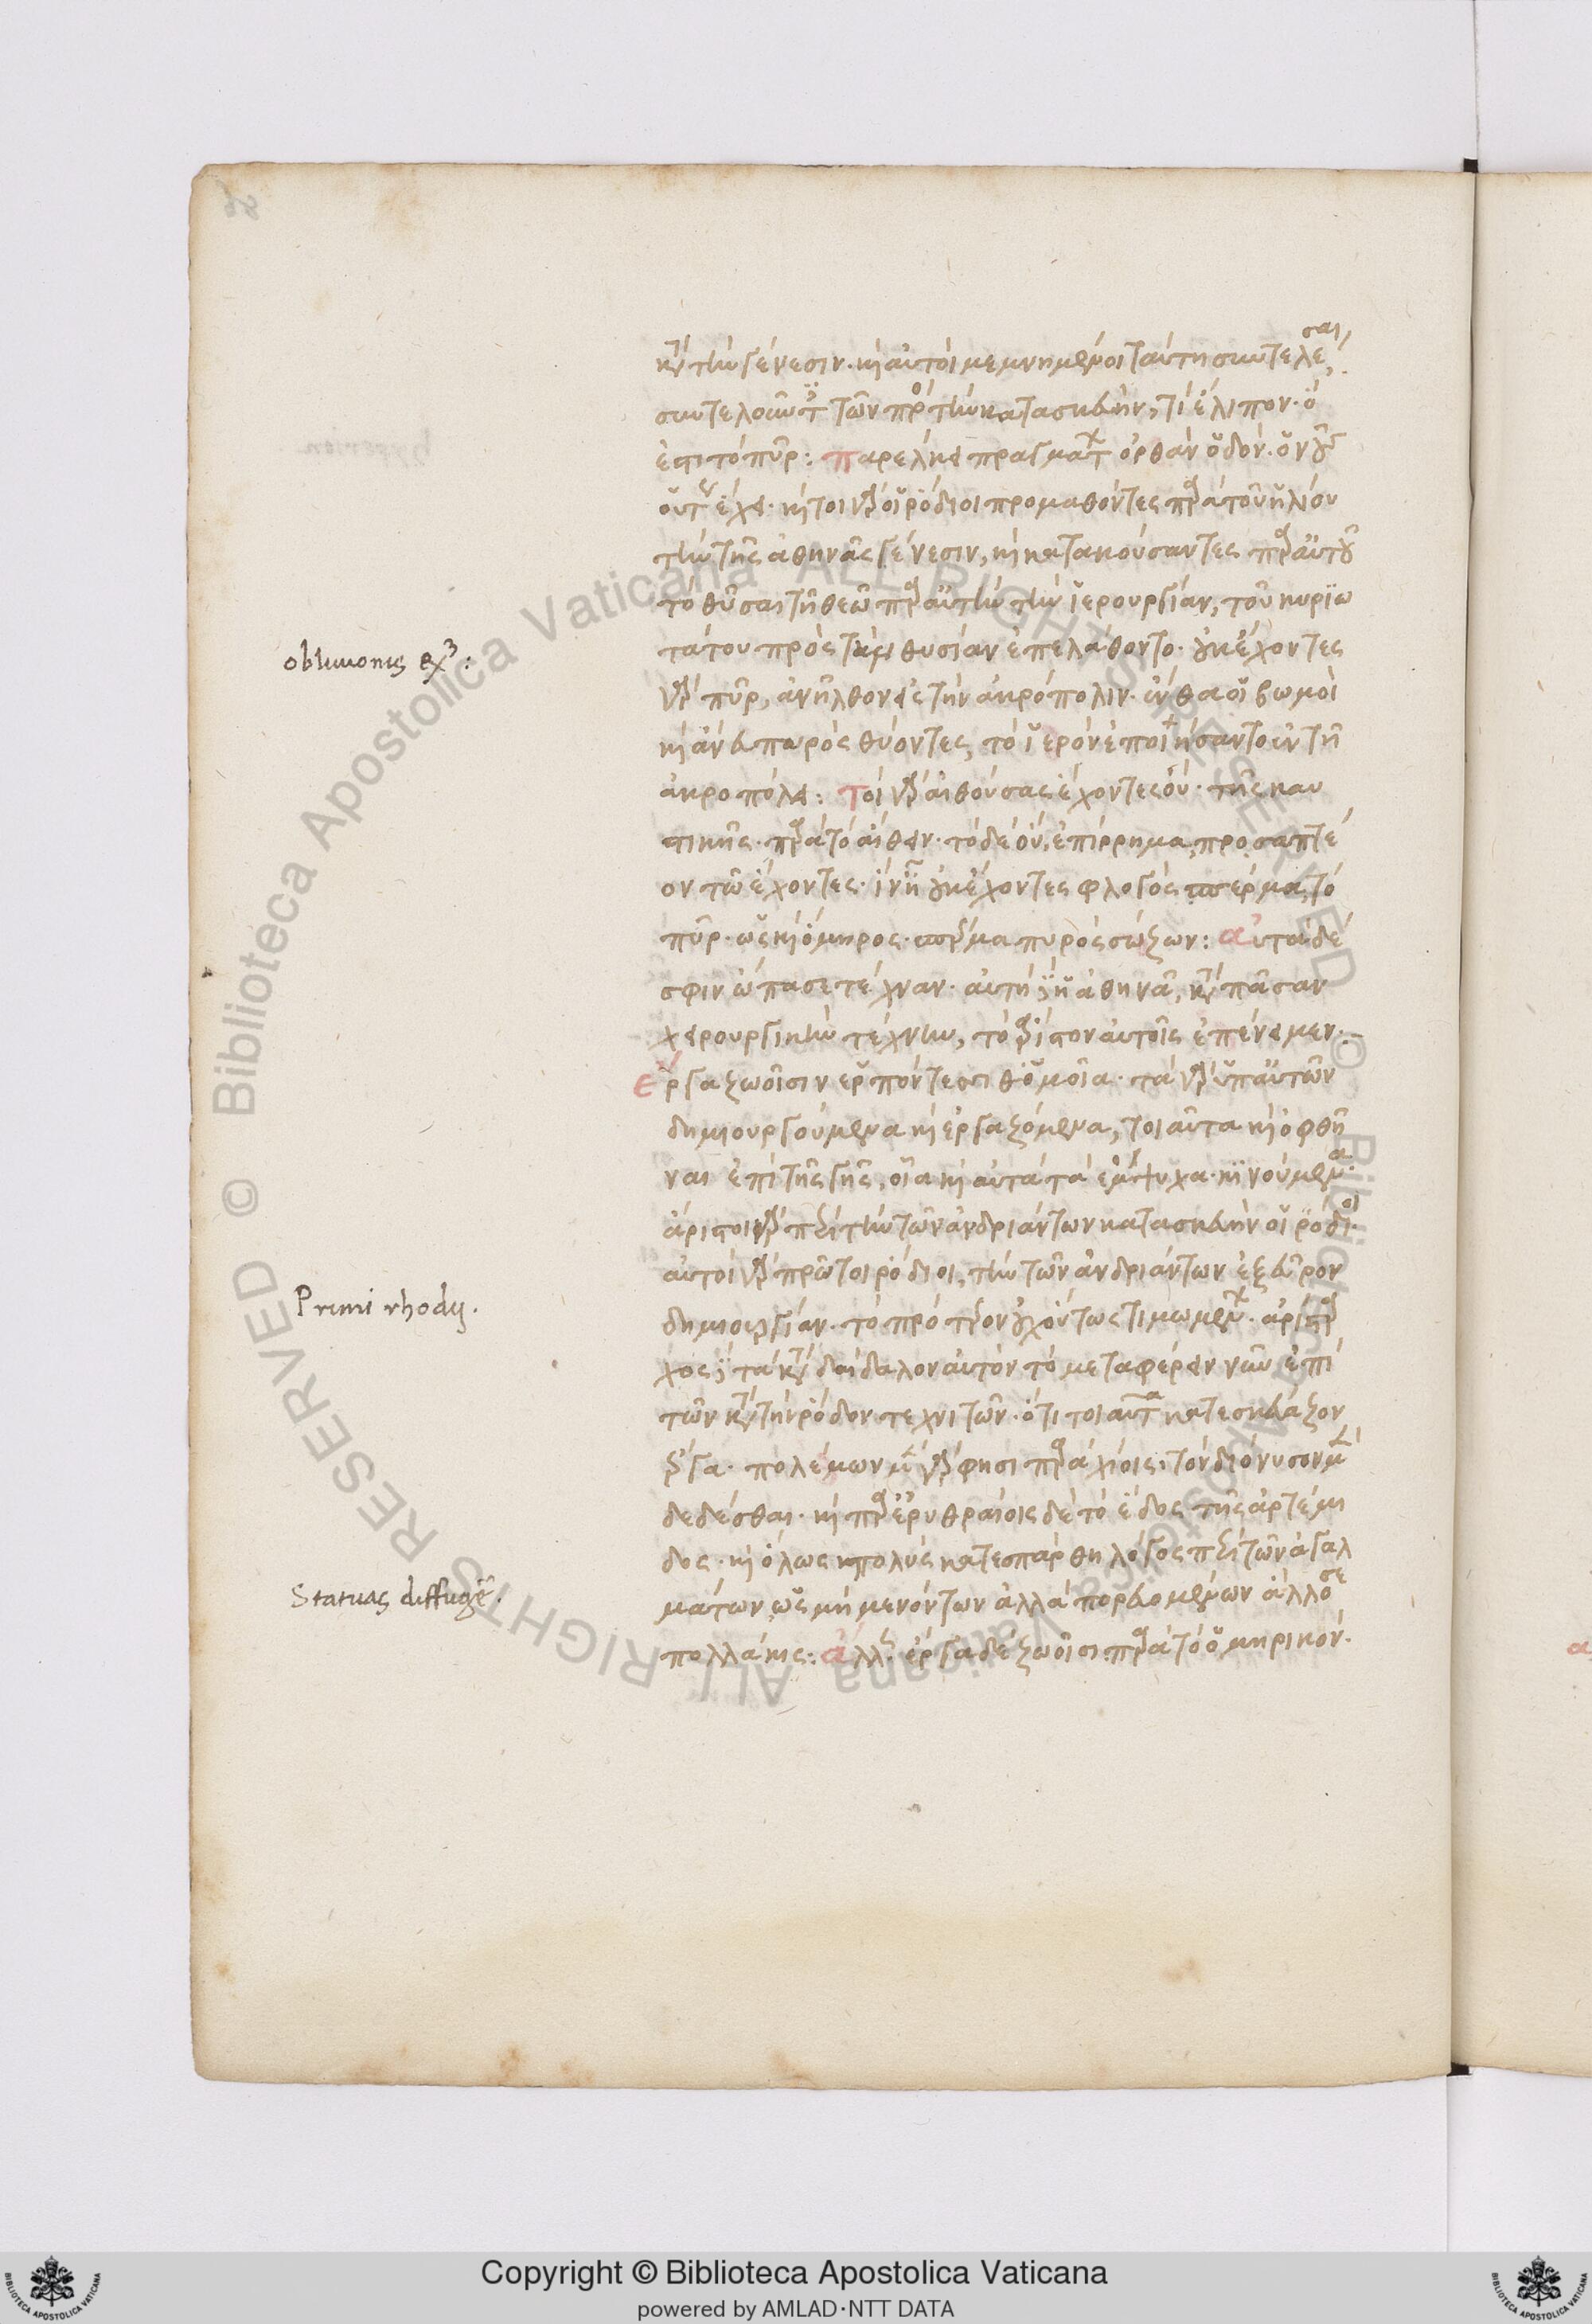 κατὰ τὴν γένεσιν. καὶ αὐτοὶ μεμνημένοι ταύτῃ συντελέσαι,
ἐπὶ τὸ πῦρ: παρέλκει πραγμάτων ὀρθὰν ὁδόν.
οὕτως ἔχει. καὶ τοὶ γὰρ οἱ ῥόδιοι προμαθόντες παρὰ τοῦ ἡλίου
τὴν τῆς ἀθηνᾶς γένεσιν, καὶ κατακούσαντες παρ' αὐτοῦ
τὸ θῦσαι τῇ θεῷ παρ' αὐτὴν τὴν ἱερουργίαν, τοῦ κυριω
τάτου πρὸς τὴν θυσίαν ἐπελάθοντο. οὐκ ἔχοντες
γὰρ πῦρ, ἀνῆλθον εἰς τὴν ἀκρόπολιν. ἔνθα οἱ βωμοὶ
καὶ ἄνευ πυρὸς θύοντες, τὸ ἱερὸν ἐποιήσαντο ἐν τῇ
ἀκροπόλει: τοὶ γὰρ αἰθούσας ἔχοντες οὔ. τῆς καυ
στικῆς. παρὰ τὸ αἴθειν. τὸ δὲ οὔ, ἐπίρρημα, προσαπτέ
ον τῷ ἔχοντες. ἵν' ᾖ οὐκ ἔχοντες φλογὸς σπέρμα, τὸ
πῦρ. ὡς καὶ ὅμηρος. σπέρμα πυρὸς σώζων: αὐτὰ δέ
σφιν ὤπασε τέχναν. αὐτὴ δὲ ἡ ἀθηνᾶ, κατὰ πᾶσαν
χειρουργικὴν τέχνην, τὸ ἄριστον αὐτοῖς ἐπένειμεν.
ἔργα ζωοῖσιν ἑρπόντεσσί θ' ὁμοῖα. τὰ γὰρ ὑπ' αὐτῶν
δημιουργούμενα καὶ ἐργαζόμενα, τοιαῦτα καὶ ὀφθῆ
ναι ἐπὶ τῆς γῆς, οἷα καὶ αὐτὰ τὰ ἔμψυχα. κινούμενα.
ἄριστοι γὰρ περὶ τὴν τῶν ἀνδριάντων κατασκευὴν οἱ ῥόδιοι.
αὐτοὶ γὰρ πρῶτοι ῥόδιοι, τὴν τῶν ἀνδριάντων ἐξεῦρον
δημιουργίαν. τὸ πρότερον οὐχ οὕτως τιμωμένων. ἀρίσταρ
χος δὲ τὰ κατὰ δαίδαλον αὐτὸν τὸ μεταφέρειν νῦν ἐπὶ
τῶν κατὰ τὴν ῥόδον τεχνιτῶν. ὅτι τοιαῦτα κατεσκεύαζον
ἔργα. πολέμων μὲν γάρ φησι παρὰ χίοις τὸν διόνυσον
δεδέσθαι. καὶ παρ' ἐρυθραίοις δὲ τὸ ἕδος τῆς ἀρτέμι
δος. καὶ ὅλως πολὺς κατεσπάρθη λόγος περὶ τῶν ἀγαλ
μάτων, ὡς μὴ μενόντων ἀλλὰ πορευομένων ἄλλοσε
πολλάκις: ἄλλως. ἔργα δὲ ζωοῖσι. παρὰ τὸ ὁμηρικόν.
oblivionis
Primi rhodij.
Statuas diffugere.
Copyright © Biblioteca Apostolica Vaticana
powered by AMLAD·NTT DATA